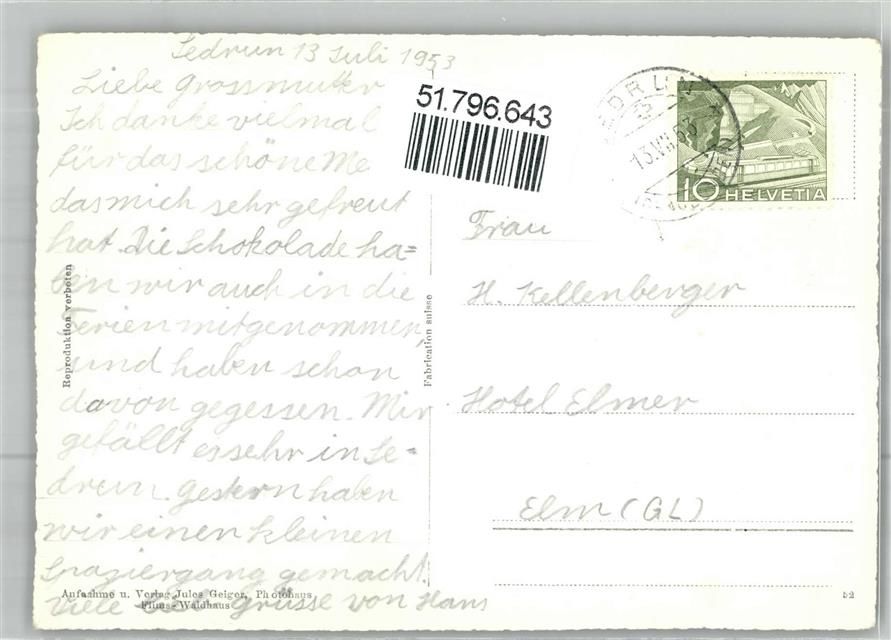 Sedrun 13 Juli 1953
Liebe Grossmutter
Ich danke vielmal
für das schöne Me
das mich sehr gefreut
hat. Die Schokolade ha=
ben wir auch in die
Ferien mitgenommen,
und haben schon
davon gegessen. Mir
gefällt es sehr in Se-
drun. Gestern haben
wir einen kleinen
Spaziergang gemacht.
Viele Grüsse von Hans
Aufnahme u. Verlag Jules Geiger, Photohaus
Flims-Waldhaus
Reproduktion verboten
Fabrication suisse
51.796.643
SEDRUN
13.VII.53
10 HELVETIA
Frau
H. Kellenberger
Hotel Elmer
Elm (GL)
52